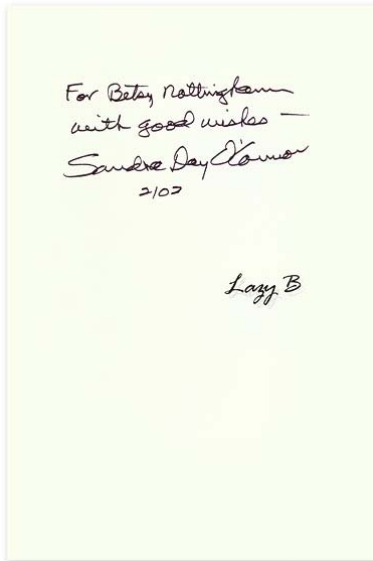 For Betsy Nottingham
with good wishes —
Sandra Day O'Connor
2/02
Lazy B